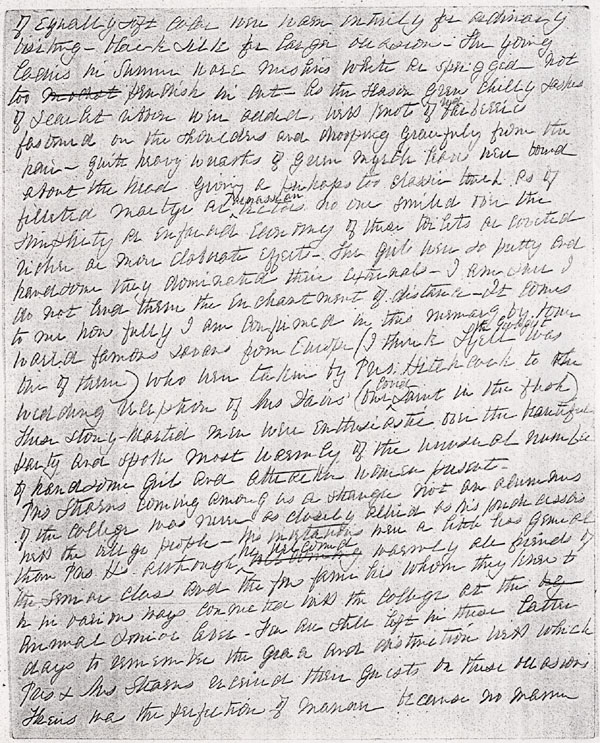 of equally soft color were worn entirely for ordinary
visiting - black silk for larger occasions - The young
ladies in summer wore muslins white or sprigged not
too modish in cut - as the season grew chilly sashes
of scarlet ribbon were added, with knots of red berries
fastened on the shoulders and drooping gracefully from the
hair - quite heavy wreaths of green myrtle leaves were bound
about the head giving a perhaps too classic touch as of
filleted martyr or victors. no one smiled over the
simplicity or enforced economy of these toilets or coveted
richer or more elaborate effects - The girls were so pretty and
handsome they dominated their externals - I am sure I
do not lend them the enchantment of distance - It comes
to me how fully I am confirmed in this memory by some
world famous savans from Europe (I think Lyell the geologist was
one of them) who were taken by Prs. Hitchcock to the
wedding reception of Mrs Davis (our saint in the flesh)
These stony-hearted men were enthusiastic over the beautiful
party and spoke most warmly of the unusual number
of handsome girls and attractive women present -
Prs Stearns coming among us a stranger not an alumnus
of the College was never as closely allied as his predecessors
with the village people - his invitations were a little less general
than Prs H. although he welcomed warmly all friends of
the senior class and the few families whom they knew to
be in various ways connected with the college at the
annual senior levee - Few are still left in these latter
days to remember the grace and distinction with which
Prs & Mrs Stearns received their guests on these occasions
Theirs was the perfection of manner because no manner